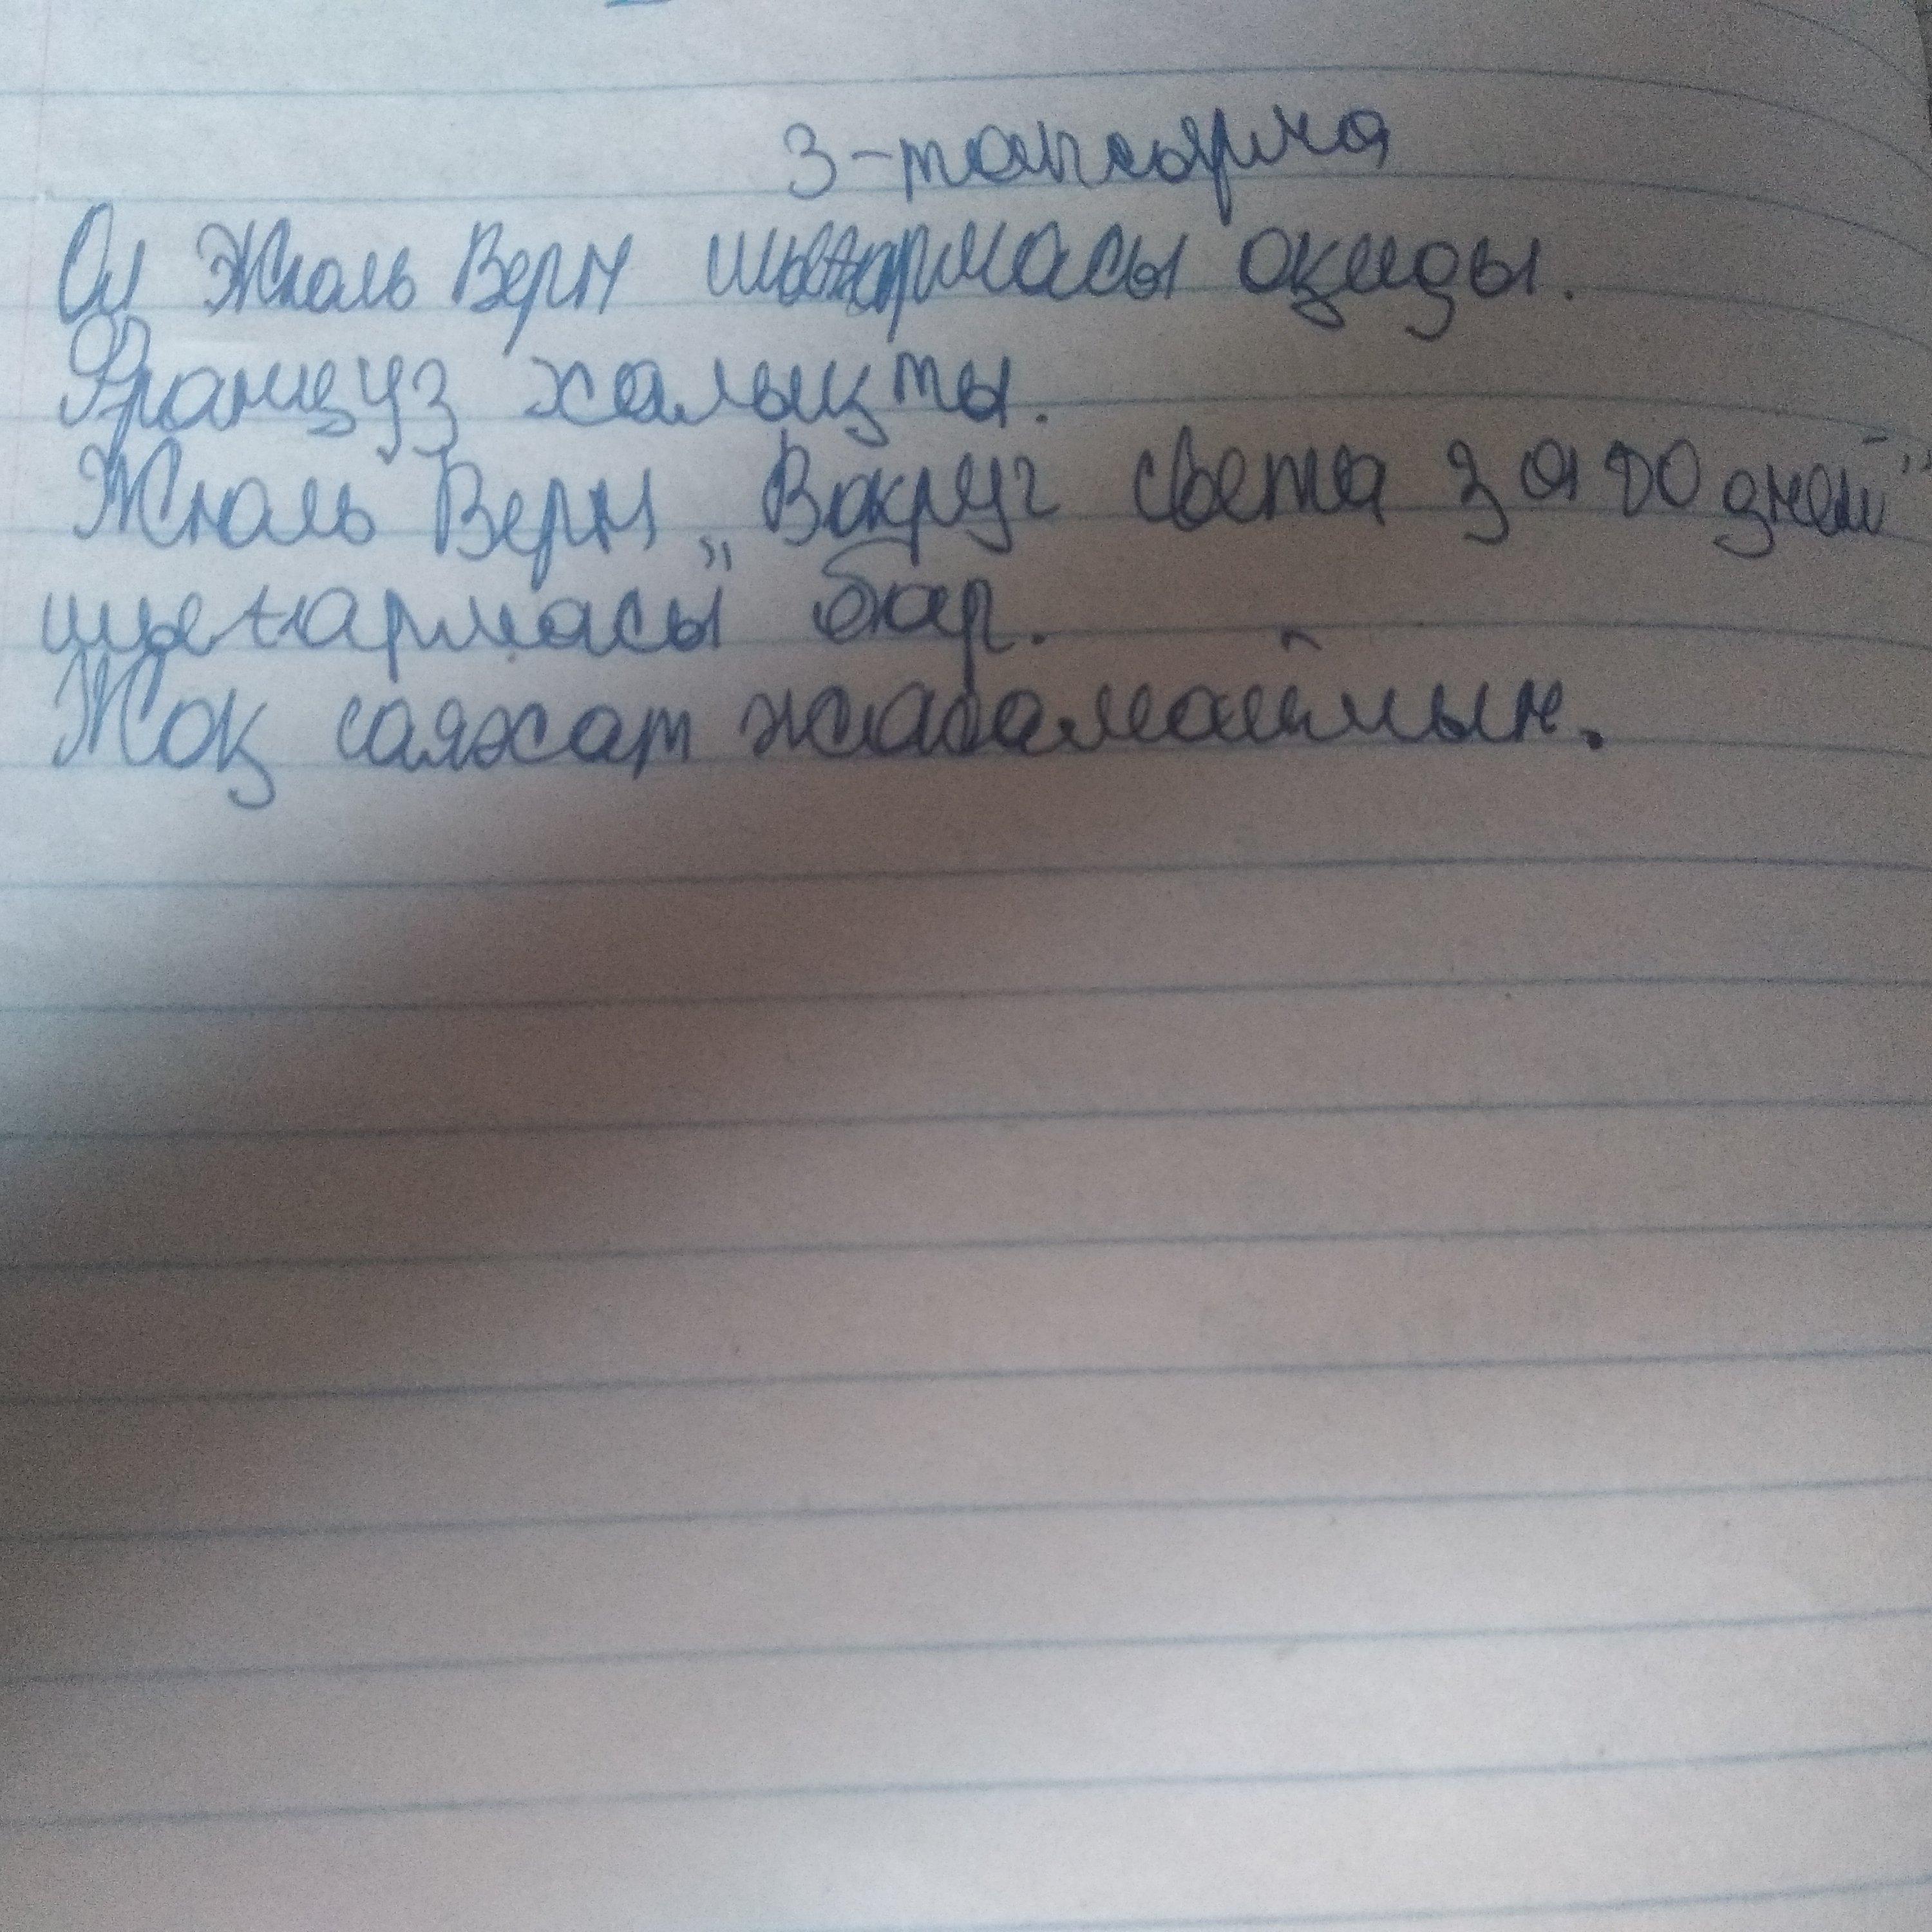 3-тапсырма
Ол Жюль Верн шығармасы оқиды.
Француз халықты.
Жюль Верн „Вокруг света за 80 дней"
шығармасы" бар.
Жоқ саяхат жасамаймын.